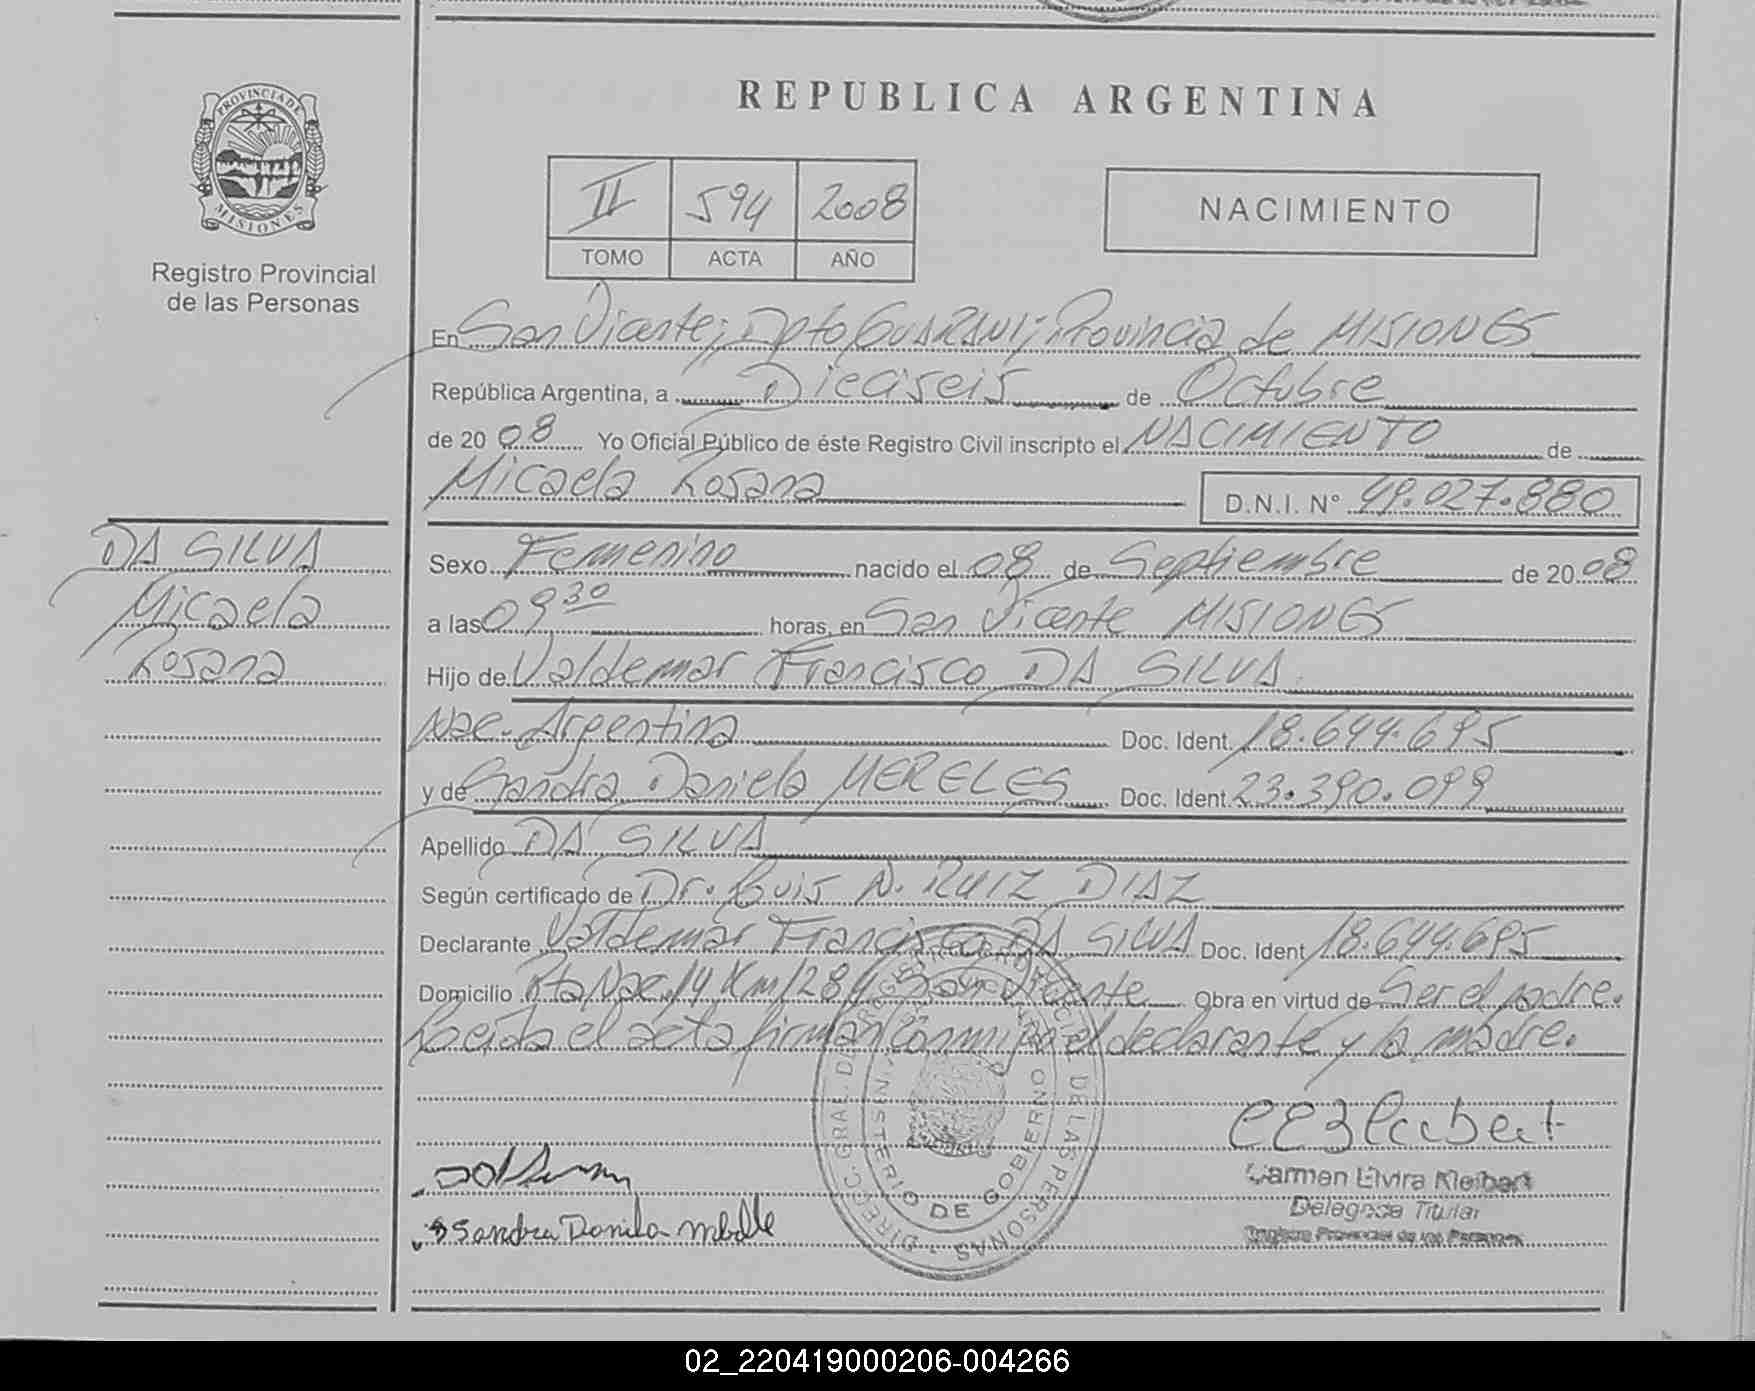 REPUBLICA ARGENTINA
PROVINCIA DE
MISIONES
Registro Provincial
de las Personas
II 594 2008
TOMO ACTA AÑO
NACIMIENTO
En San Vicente; Dpto GUARANI; Provincia de MISIONES
República Argentina, a Dieciseis de Octubre
de 20 08 Yo Oficial Público de éste Registro Civil inscripto el NACIMIENTO de
Micaela Rosana D.N.I. Nº 49.027.880
DA SILVA
Micaela
Rosana
Sexo Femenino nacido el 08 de Septiembre de 20 08
a las 09 30 horas, en San Vicente MISIONES
Hijo de Valdemar Francisco DA SILVA
Nac. Argentina Doc. Ident. 18.644.695
y de Sandra Daniela MERELES Doc. Ident. 23.390.099
Apellido DA SILVA
Según certificado de Dr. Luis N. RUIZ DIAZ
Declarante Valdemar Francisco DA SILVA Doc. Ident 18.644.695
Domicilio Rta Nac. 14 Km 1284 San Vicente Obra en virtud de Ser el padre.
Leída el acta firman conmigo el declarante y la madre.
DIREC. GRAL. DE REGISTRO DE LAS PERSONAS
MINISTERIO DE GOBIERNO
Carmen Elvira Kleibert
Delegada Titular
Registro Provincial de las Personas
02_220419000206-004266